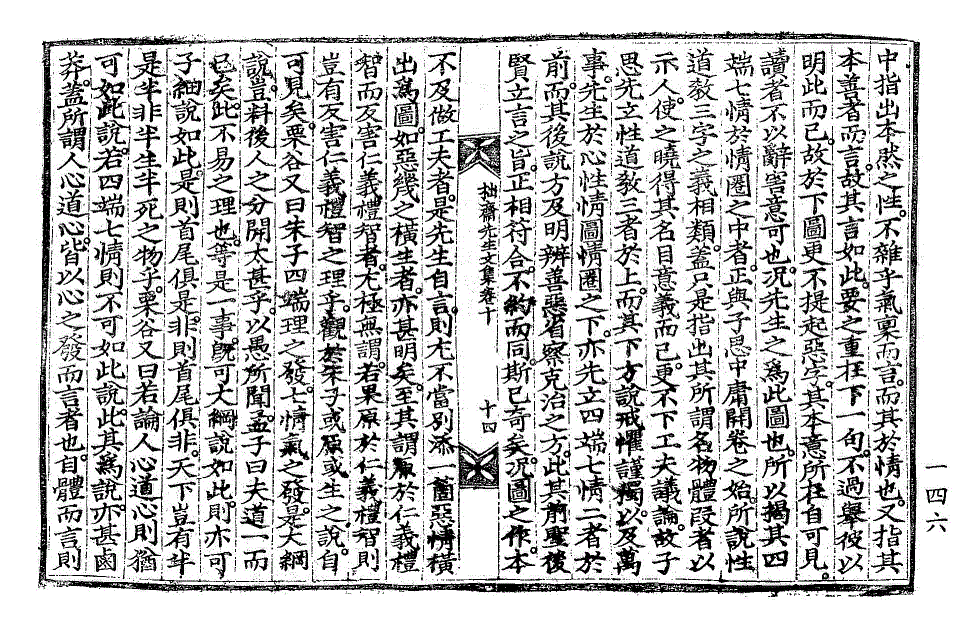 中指出本然之性。不雜乎氣稟而言。而其於情也。又指其
本善者而言。故其言如此。要之重在下一句。不過擧彼以
明此而已。故於下圖更不提起惡字。其本意所在自可見。
讀者不以辭害意可也。况先生之爲此圖也。所以揭其四
端七情於情圈之中者。正與子思中庸開卷之始。所說性
道敎三字之義相類。蓋只是指出其所謂名物體段者以
示人。使之曉得其名目意義而已。更不下工夫議論。故子
思先立性道敎三者於上。而其下方說戒懼謹獨。以及萬
事。先生於心性情圖情圈之下。亦先立四端七情二者於
前。而其後說方及明辨善惡省察克治之方。此其前聖後
賢立言之旨。正相符合。不約而同。斯已奇矣。况圖之作。本
拙齋先生文集卷十
十四
不及做工夫者。是先生自言。則尤不當別添一箇惡情橫
出爲圖。如惡幾之橫生者。亦甚明矣。至其謂原於仁義禮
智而反害仁義禮智者。尤極無謂。若果原於仁義禮智。則
豈有反害仁義禮智之理乎。觀於朱子或原或生之說。自
可見矣。栗谷又曰朱子四端理之發。七情氣之發。是大綱
說。豈料後人之分開太甚乎。以愚所聞。孟子曰夫道一而
已矣。此不易之理也。等是一事。旣可大綱說如此。則亦可
子細說如此。是則首尾俱是。非則首尾俱非。天下豈有半
是半非半生半死之物乎。栗谷又曰若論人心道心則猶
可如此說。若四端七情則不可如此說。此其爲說。亦甚鹵
莽。蓋所謂人心道心。皆以心之發而言者也。自體而言則
一四六